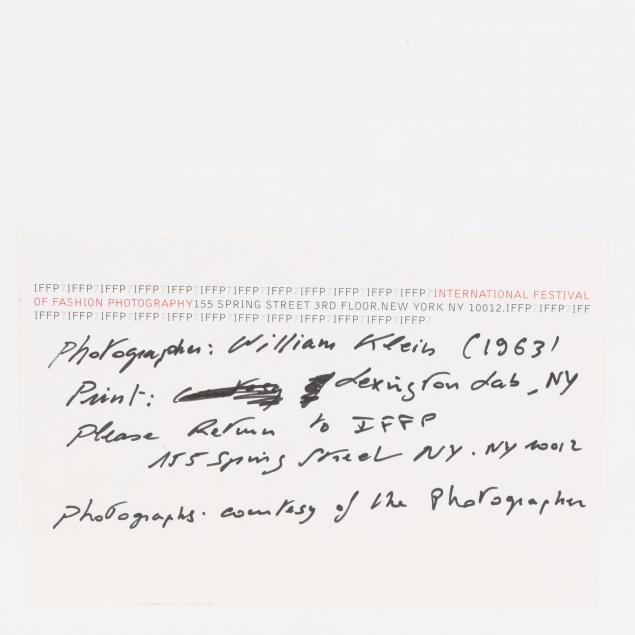 IFFP7IFFP7IFFP7IFFP7IFFP7IFFP7IFFP7IFFP7IFFP7IFFP7IFFP7IFFP7INTERNATIONAL FESTIVAL
OF FASHION PHOTOGRAPHY155 SPRING STREET 3RD FLOOR.NEW YORK NY 10012.IFFP7IFFP7IFF
IFFP7IFFP7IFFP7IFFP7IFFP7IFFP7IFFP7IFFP7IFFP7IFFP7IFFP7IFFP7
Photographer: William Klein (1963)
Print: Lexington Lab, NY
Please Return to IFFP
155 Spring Street NY. NY 10012
Photographs. courtesy of the Photographer